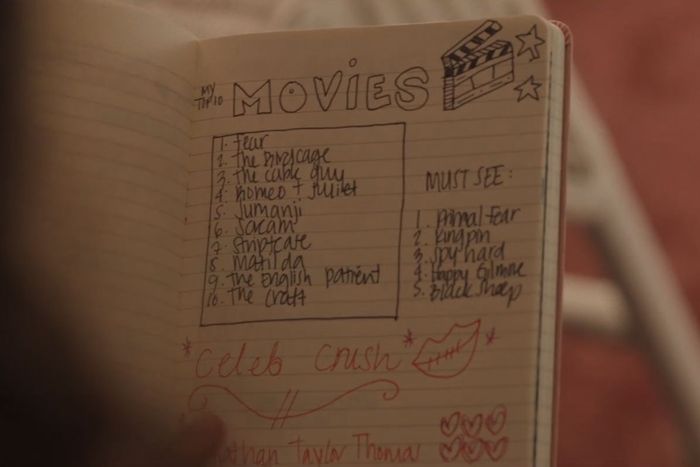 MY TOP 10
MOVIES
1. Fear
2. The Birdcage
3. The cable guy
4. Romeo + Juliet
5. Jumanji
6. Scream
7. Striptease
8. Matilda
9. The English patient
10. The Craft
MUST SEE:
1. Primal Fear
2. Kingpin
3. Spy hard
4. Happy Gilmore
5. Black Sheep
*Celeb Crush*
Taylor Thomas